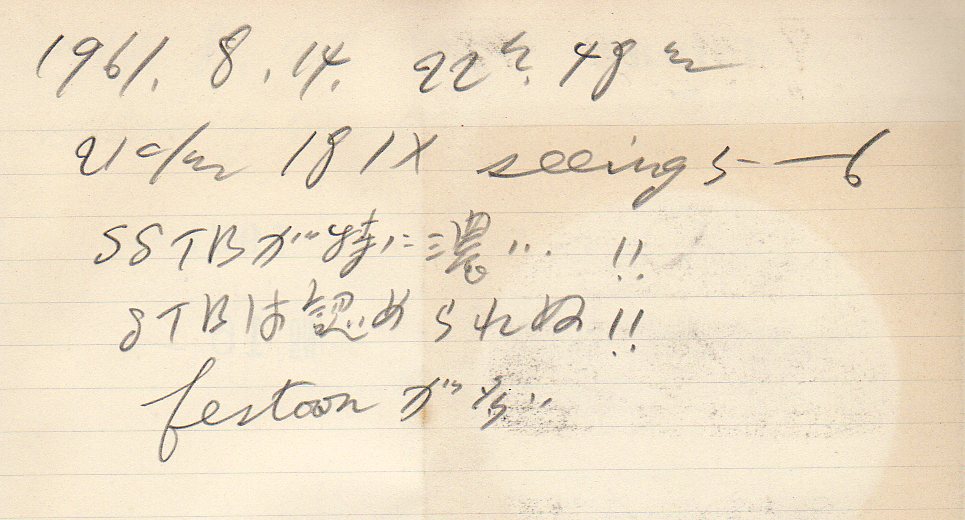 1961. 8. 14. 22h. 48m
21cm 181X seeing 5—6
SSTBが特に濃い. !!
STBは認められぬ!!
festoonが多い